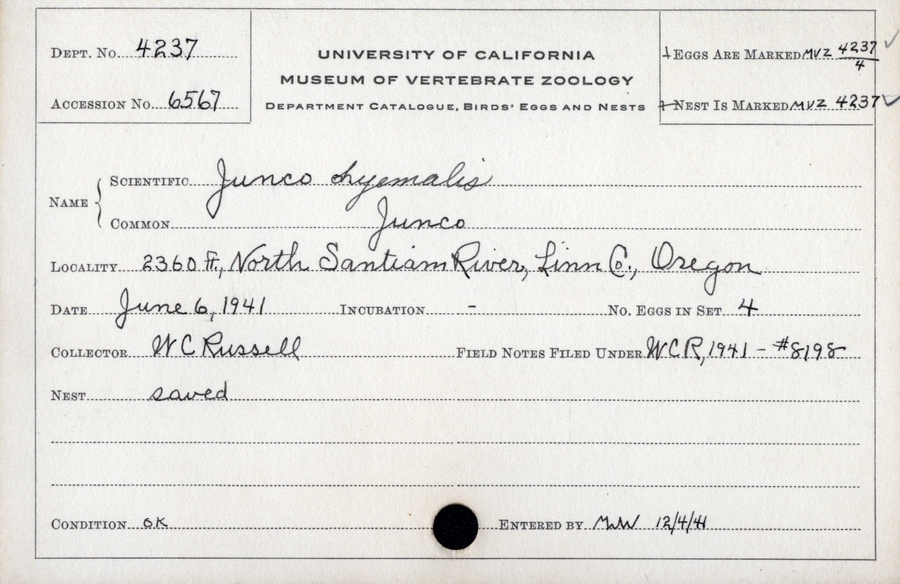 DEPT. NO. 4237
ACCESSION NO. 6567
UNIVERSITY OF CALIFORNIA
MUSEUM OF VERTEBRATE ZOOLOGY
DEPARTMENT CATALOGUE, BIRDS' EGGS AND NESTS
EGGS ARE MARKED MVZ 4237/4
NEST IS MARKED MVZ 4237
NAME
SCIENTIFIC Junco hyemalis
COMMON Junco
LOCALITY 2360 ft., North Santiam River, Linn Co., Oregon
DATE June 6, 1941 INCUBATION - NO. EGGS IN SET 4
COLLECTOR W C Russell FIELD NOTES FILED UNDER WCR, 1941 - #8198
NEST saved
CONDITION OK ENTERED BY 12/4/41